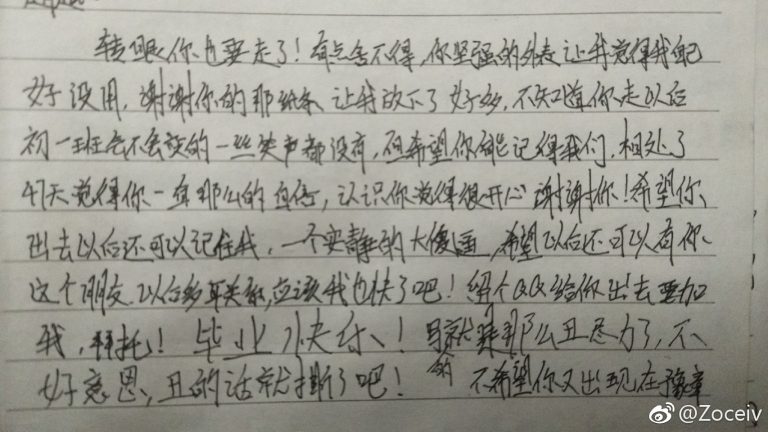 转眼你也要走了！有点舍不得，你坚强的外表让我觉得我自己
好没用，谢谢你的那纸条，让我放下了好多，不知道你走以后
初一班会不会变的一些笑声都没有，但希望你能记得我们，相处了
47天觉得你一直那么的自信，认识你觉得很开心谢谢你！希望你
出去以后还可以记住我，一个安静的大傻逼，希望以后还可以有你
这个朋友，以后多联系，应该我也快了吧！留个QQ给你出去要加
我，拜托！毕业快乐！字就是那么丑尽力了，不
好意思，丑的话就撕了吧！不希望你又出现在豫章
@Zoceiv